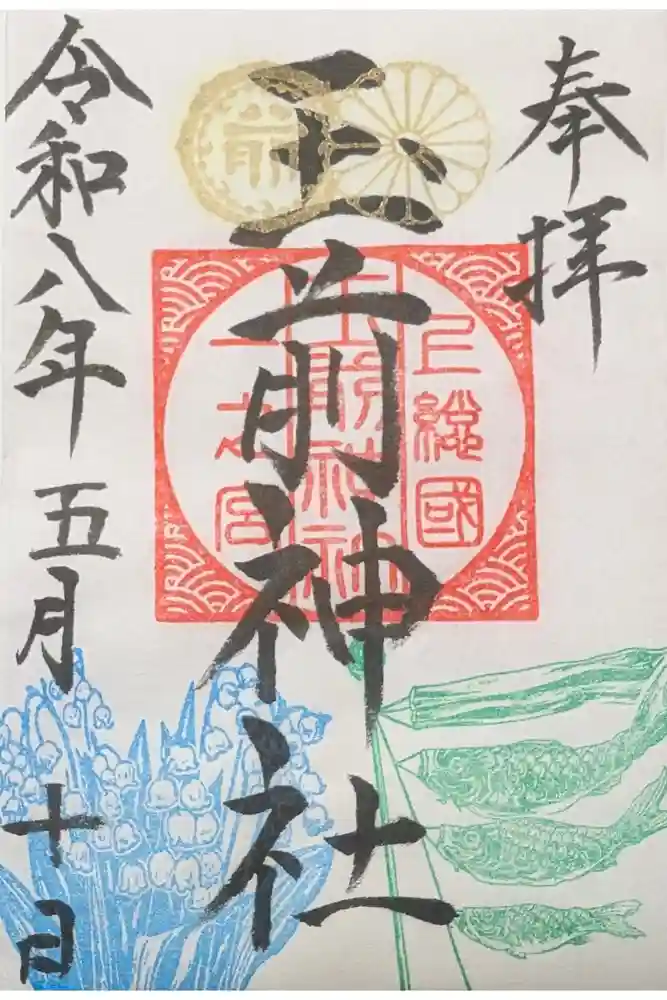 奉拝
玉前神社
上総國
玉前神社
一之宮
前
令和八年
五月
十日